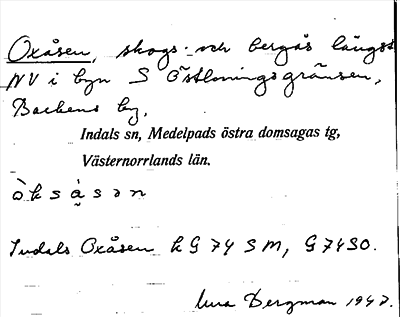 Oxåsen, skogs- och bergås längst
NV i byn S Östloningsgränsen,
Backens by.
Indals sn, Medelpads östra domsagas tg,
Västernorrlands län.
ò k s à̰ s ə n
Indals Oxåsen k G 74 S M, G 74 S O.
Bergman 1947.